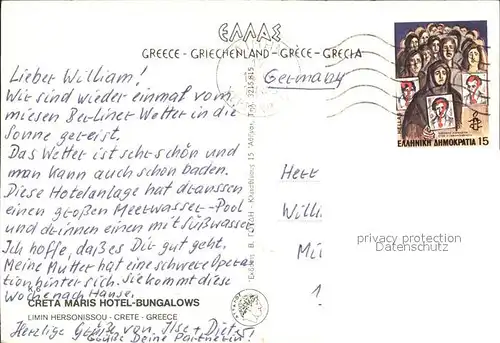 ΕΛΛΑΣ
GREECE - GRIECHENLAND - GRÈCE - GRECIA
Germany
Lieber William!
Wir sind wieder einmal vom
miesen Berliner Wetter in die
Sonne gereist.
Das Wetter ist sehr schön und
man kann auch schon baden.
Diese Hotelanlage hat draussen
einen großen Meerwasser-Pool
und drinnen einen mit Süßwasser
Ich hoffe, daß es Dir gut geht.
Meine Mutter hat eine schwere Opera-
tion hinter sich. Sie kommt diese
Woche nach Hause.
CRETA MARIS HOTEL-BUNGALOWS
LIMIN HERSONISSOU - CRETE - GREECE
Herzliche Grüße von Ilse + Dieter
Grüße Deine Partnerin!
ΕΛΛΗΝΙΚΗ ΔΗΜΟΚΡΑΤΙΑ 15
Herr
Willi
privacy protection
Datenschutz